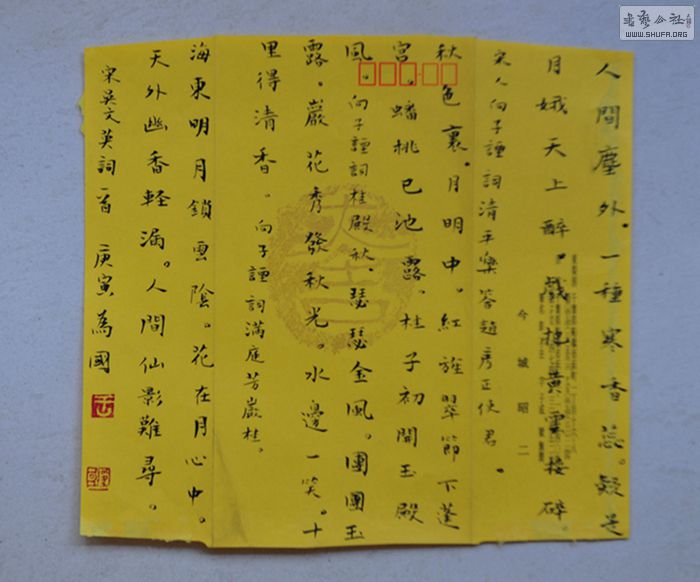 人間塵外。一種寒香蕊。疑是
月娥天上醉。戲把黃雲挼碎。
宋人向子諲詞清平樂答趙彥正使君。
秋色裏。月明中。紅旌翠節下蓬
宮。蟠桃已結瑤池露。桂子初開玉殿
風。向子諲詞桂殿秋。瑟瑟金風。團團玉
露。巖花秀發秋光。水邊一笑。十
里得清香。向子諲詞滿庭芳巖桂。
海東明月鎖雲陰。花在月心中。
天外幽香輕漏。人間仙影難尋。
宋吳文英詞一首 庚寅為國
今城昭二
書藝公社
WWW.SHUFA.ORG